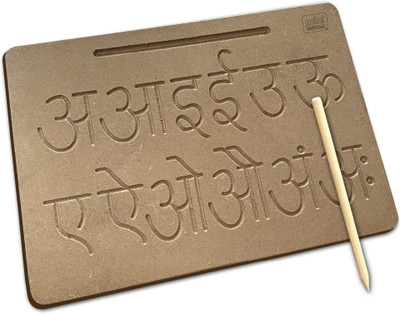 अ आ इ ई उ ऊ
ए ऐ ओ औ अं अः